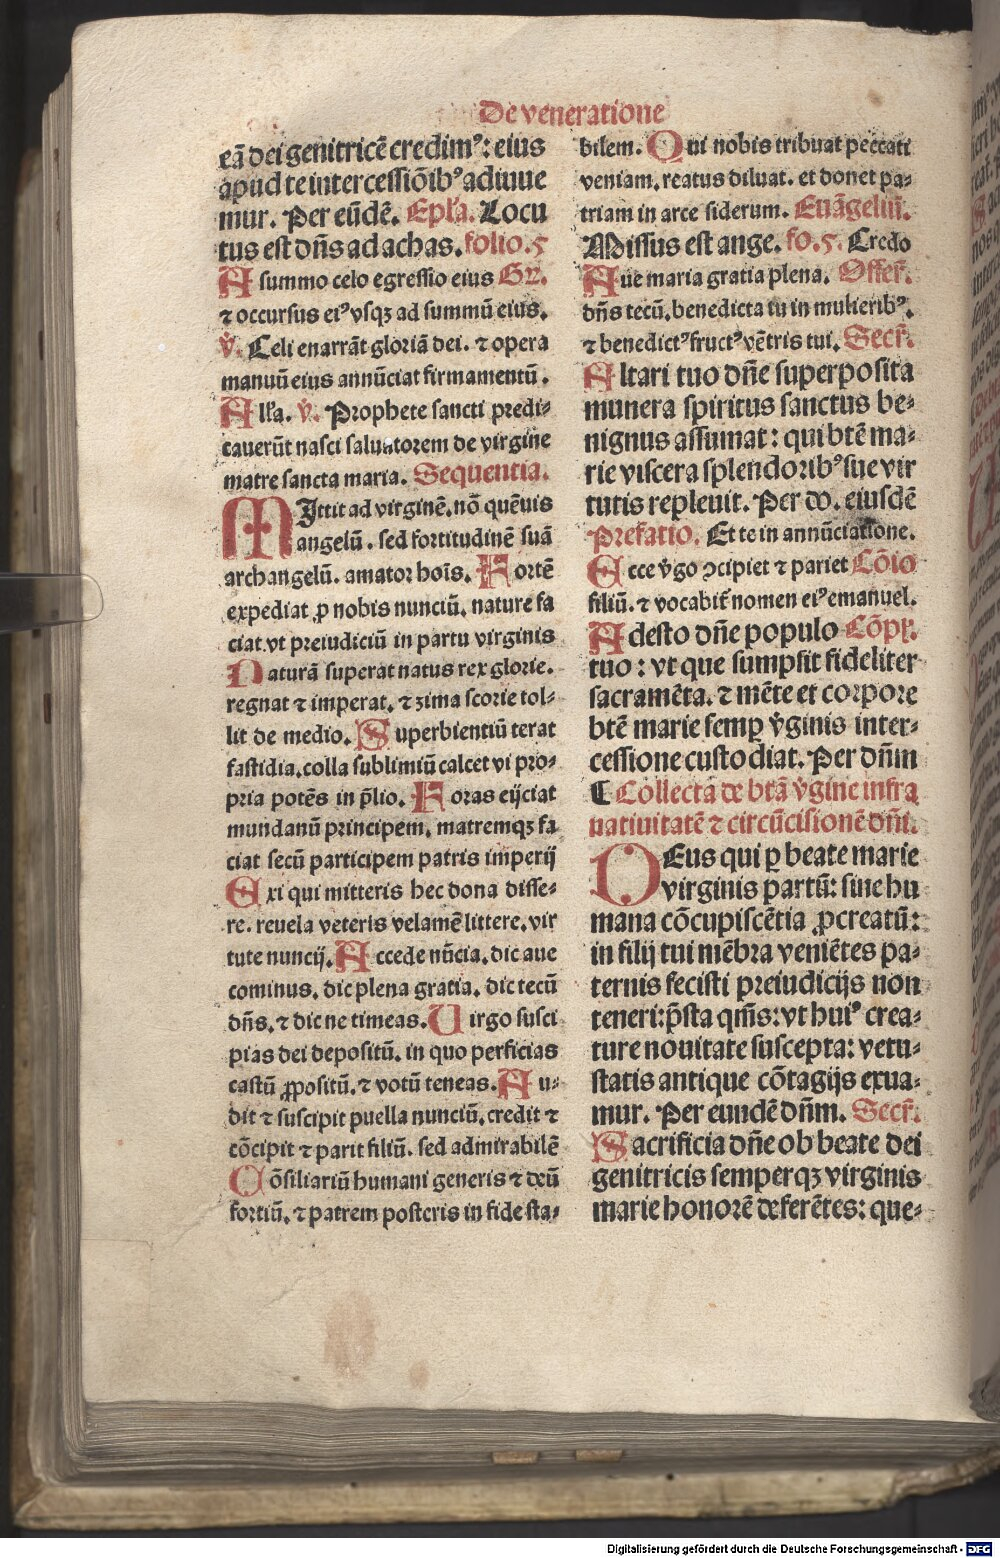 De veneratione
eā dei genitricē credimꝰ: eius
apud te intercessiōibꝰ adiuue
mur. Per eūdē. Epl'a. Locu
tus est dn̄s ad achas. folio.5
A summo celo egressio eius Gr̄.
⁊ occursus eiꝰ vsqꝫ ad summū eius.
v̄. Celi enarrāt gloriā dei. ⁊ opera
manuū eius annūciat firmamentū.
All'a. v̄. Prophete sancti predi-
cauerūt nasci saluatorem de virgine
matre sancta maria. Sequentia.
MIttit ad virginē. nō quēuis
angelū. sed fortitudinē suā
archangelū. amator hoīs. Fortē
expediat ꝓ nobis nunciū. nature fa
ciat vt preiudiciū in partu virginis
Naturā superat natus rex glorie.
regnat ⁊ imperat. ⁊ zima scorie tol-
lit de medio. Superbientiū terat
fastidia. colla sublimiū calcet vi pro-
pria potēs in p̄lio. Foras eijciat
mundanū principem. matremqꝫ fa
ciat secū participem patris imperij
Exi qui mitteris hec dona disse-
re. reuela veteris velamē littere. vir
tute nuncij. Accede nūcia. dic aue
cominus. dic plena gratia. dic tecū
dn̄s. ⁊ dic ne timeas. Uirgo susci
pias dei depositū. in quo perficias
castū ꝓpositū. ⁊ votū teneas. Au-
dit ⁊ suscipit puella nunciū. credit ⁊
cōcipit ⁊ parit filiū. sed admirabilē
Cōsiliariū humani generis ⁊ deū
fortiū. ⁊ patrem posteris in fide sta-
bilem. Qui nobis tribuat peccati
veniam. reatus diluat. et donet pa-
triam in arce siderum. Euāgeliū.
Missus est ange. fo.5. Credo
Aue maria gratia plena. Offer̄.
dn̄s tecū. benedicta tu in mulieribꝰ.
⁊ benedictꝰ fructꝰ vētris tui. Secr̄.
Altari tuo dn̄e superposita
munera spiritus sanctus be-
nignus assumat: qui btē ma-
rie viscera splendoribꝰ sue vir
tutis repleuit. Per do. eiusdē
Prefatio. Et te in annūciatione.
Ecce v̄go ↄcipiet ⁊ pariet Cōio
filiū. ⁊ vocabit̄ nomen eiꝰ emanuel.
Adesto dn̄e populo Cōpl̄.
tuo: vt que sumpsit fideliter
sacramēta. ⁊ mēte et corpore
btē marie semꝑ v̄ginis inter-
cessione custodiat. Per dn̄m
¶ Collecta de btā v̄gine infra
natiuitatē ⁊ circūcisionē dn̄i.
DEus qui ꝑ beate marie
virginis partū: sine hu
mana cōcupiscētia ꝓcreatū:
in filij tui mēbra veniētes pa-
ternis fecisti preiudicijs non
teneri: p̄sta qm̄s: vt huiꝰ crea-
ture nouitate suscepta: vetu-
statis antique cōtagijs exua-
mur. Per eundē dn̄m. Secr̄.
Sacrificia dn̄e ob beate dei
genitricis semperqꝫ virginis
marie honorē deferētes: que-
Digitalisierung gefördert durch die Deutsche Forschungsgemeinschaft - DFG